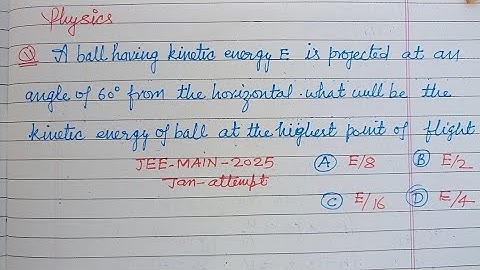 Physics
Q A ball having kinetic energy E is projected at an
angle of 60° from the horizontal. what will be the
kinetic energy of ball at the highest point of flight
JEE-MAIN-2025 A E/8 B E/2
Jan-attempt
C E/16 D E/4